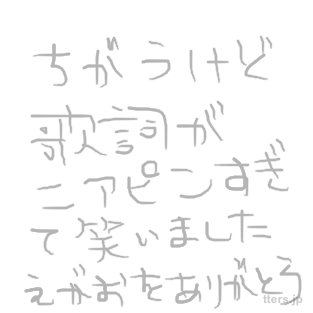 ちがうけど
歌詞が
ニアピンすぎ
て笑いました
えがおをありがとう
tters.jp